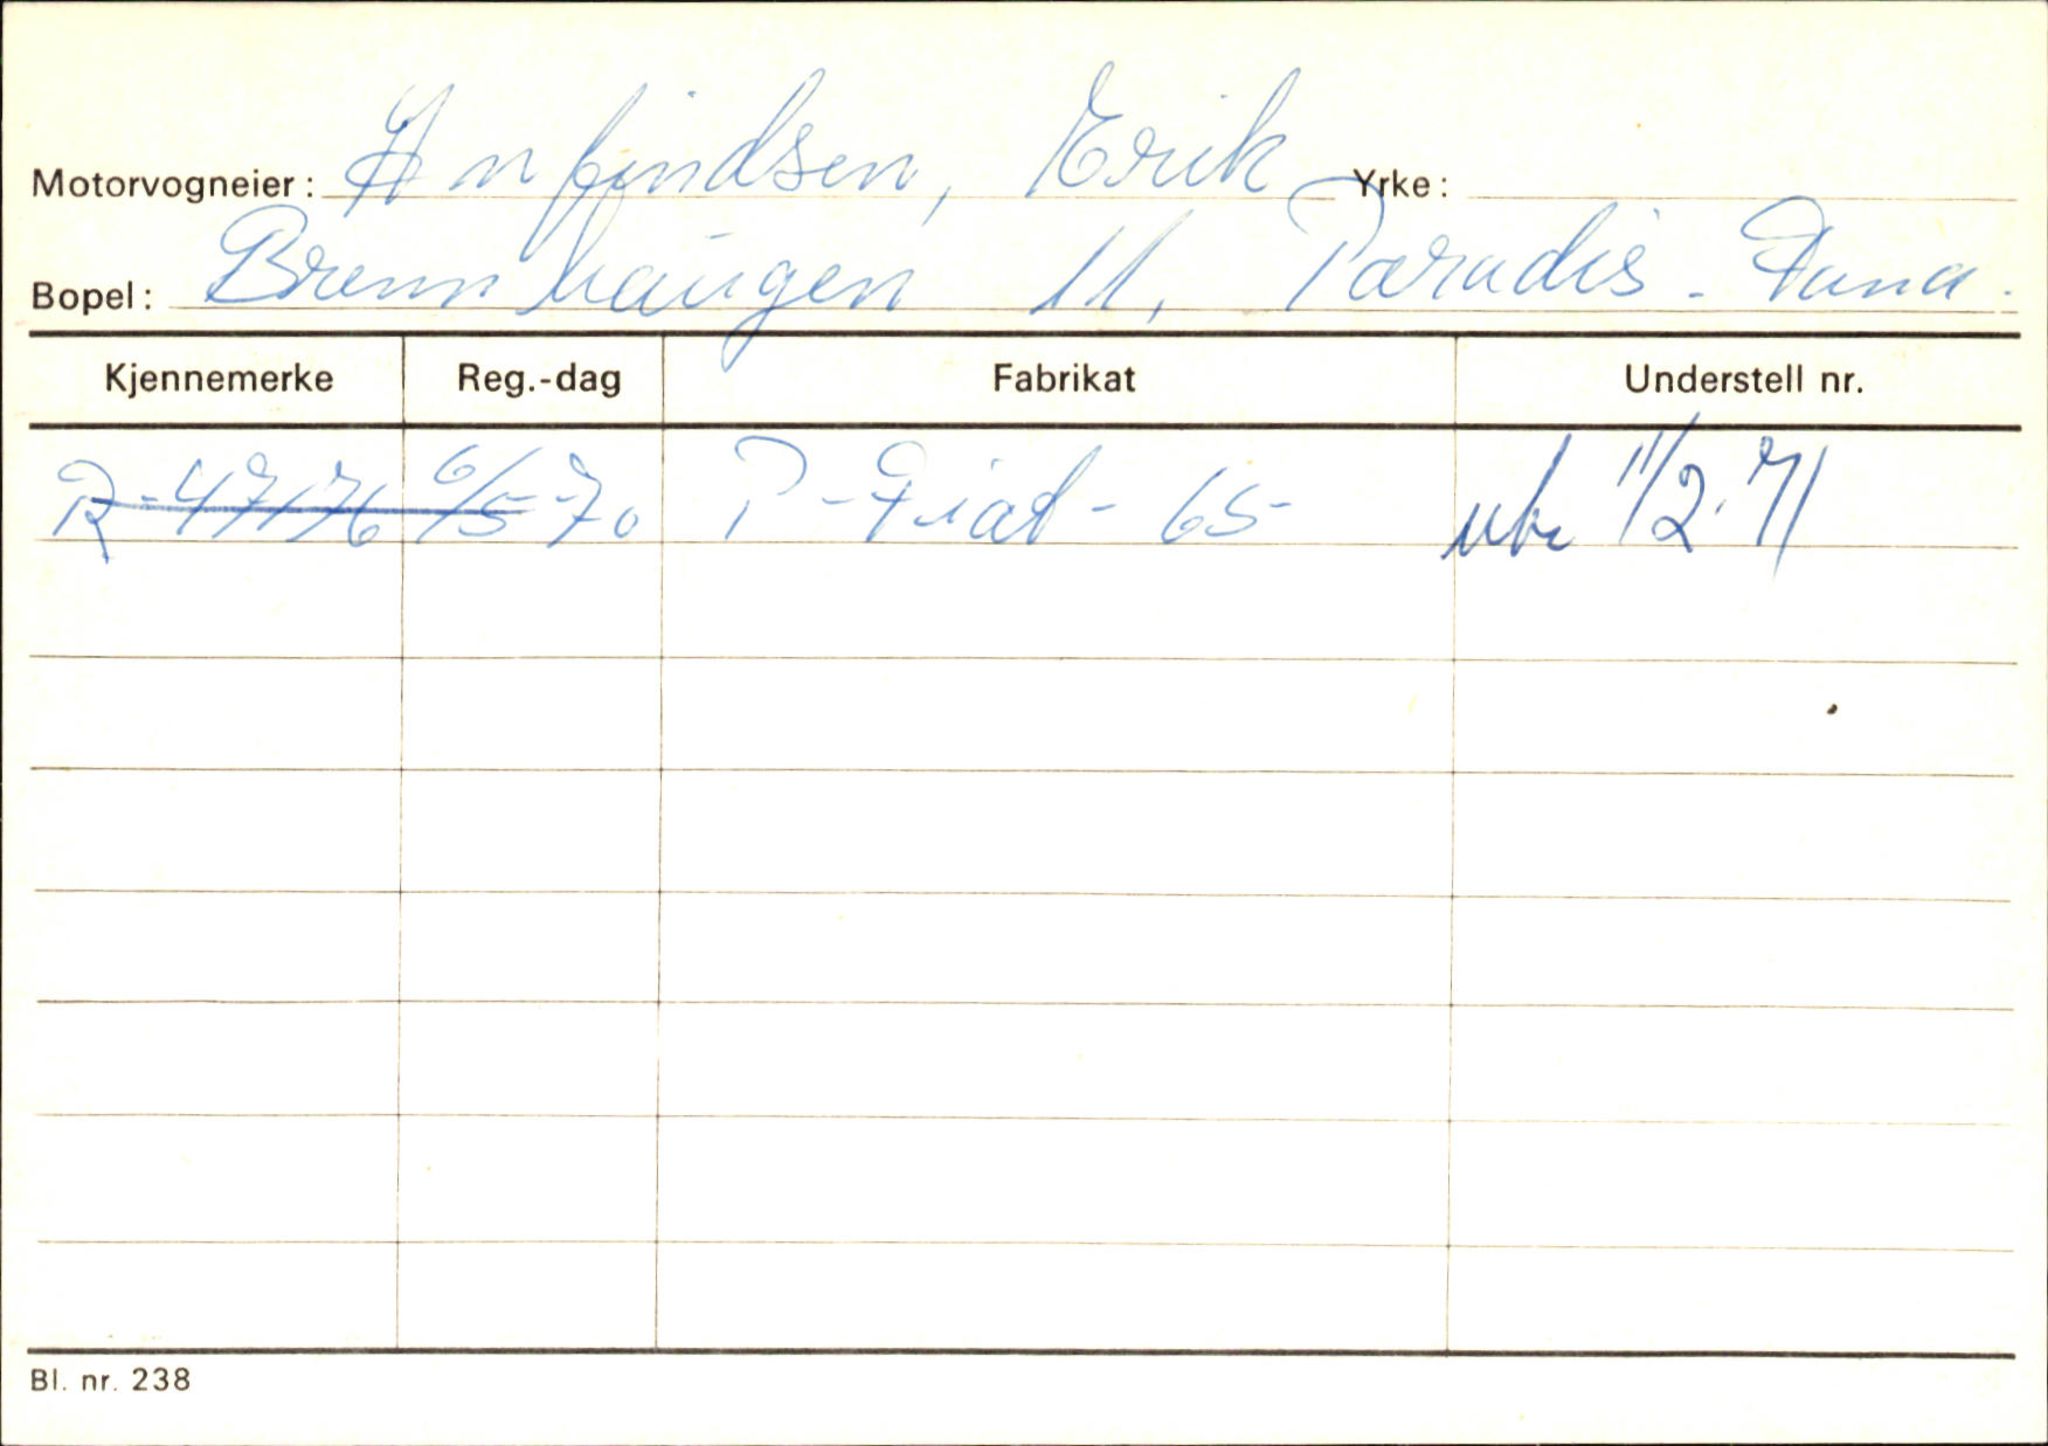 Motorvogneier: Anfindsen, Erik Yrke:
Bopel: Brennhaugen 11, Paradis - Fana.
Kjennemerke Reg.-dag Fabrikat Understell nr.
R-47176 6/5-70 P-Fiat-65- 11/2.71
Bl. nr. 238